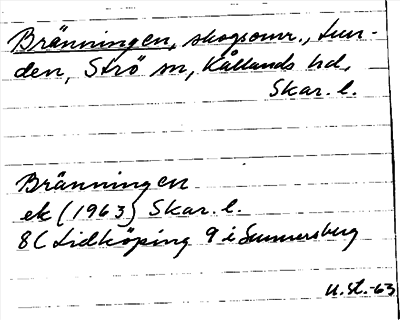 Bränningen, skogsomr., Lun-
den, Strö sn, Kållands hd,
Skar. l.
Bränningen
ek (1963) Skar. l.
8C Lidköping 9 i Sunnersberg
U.St.-63